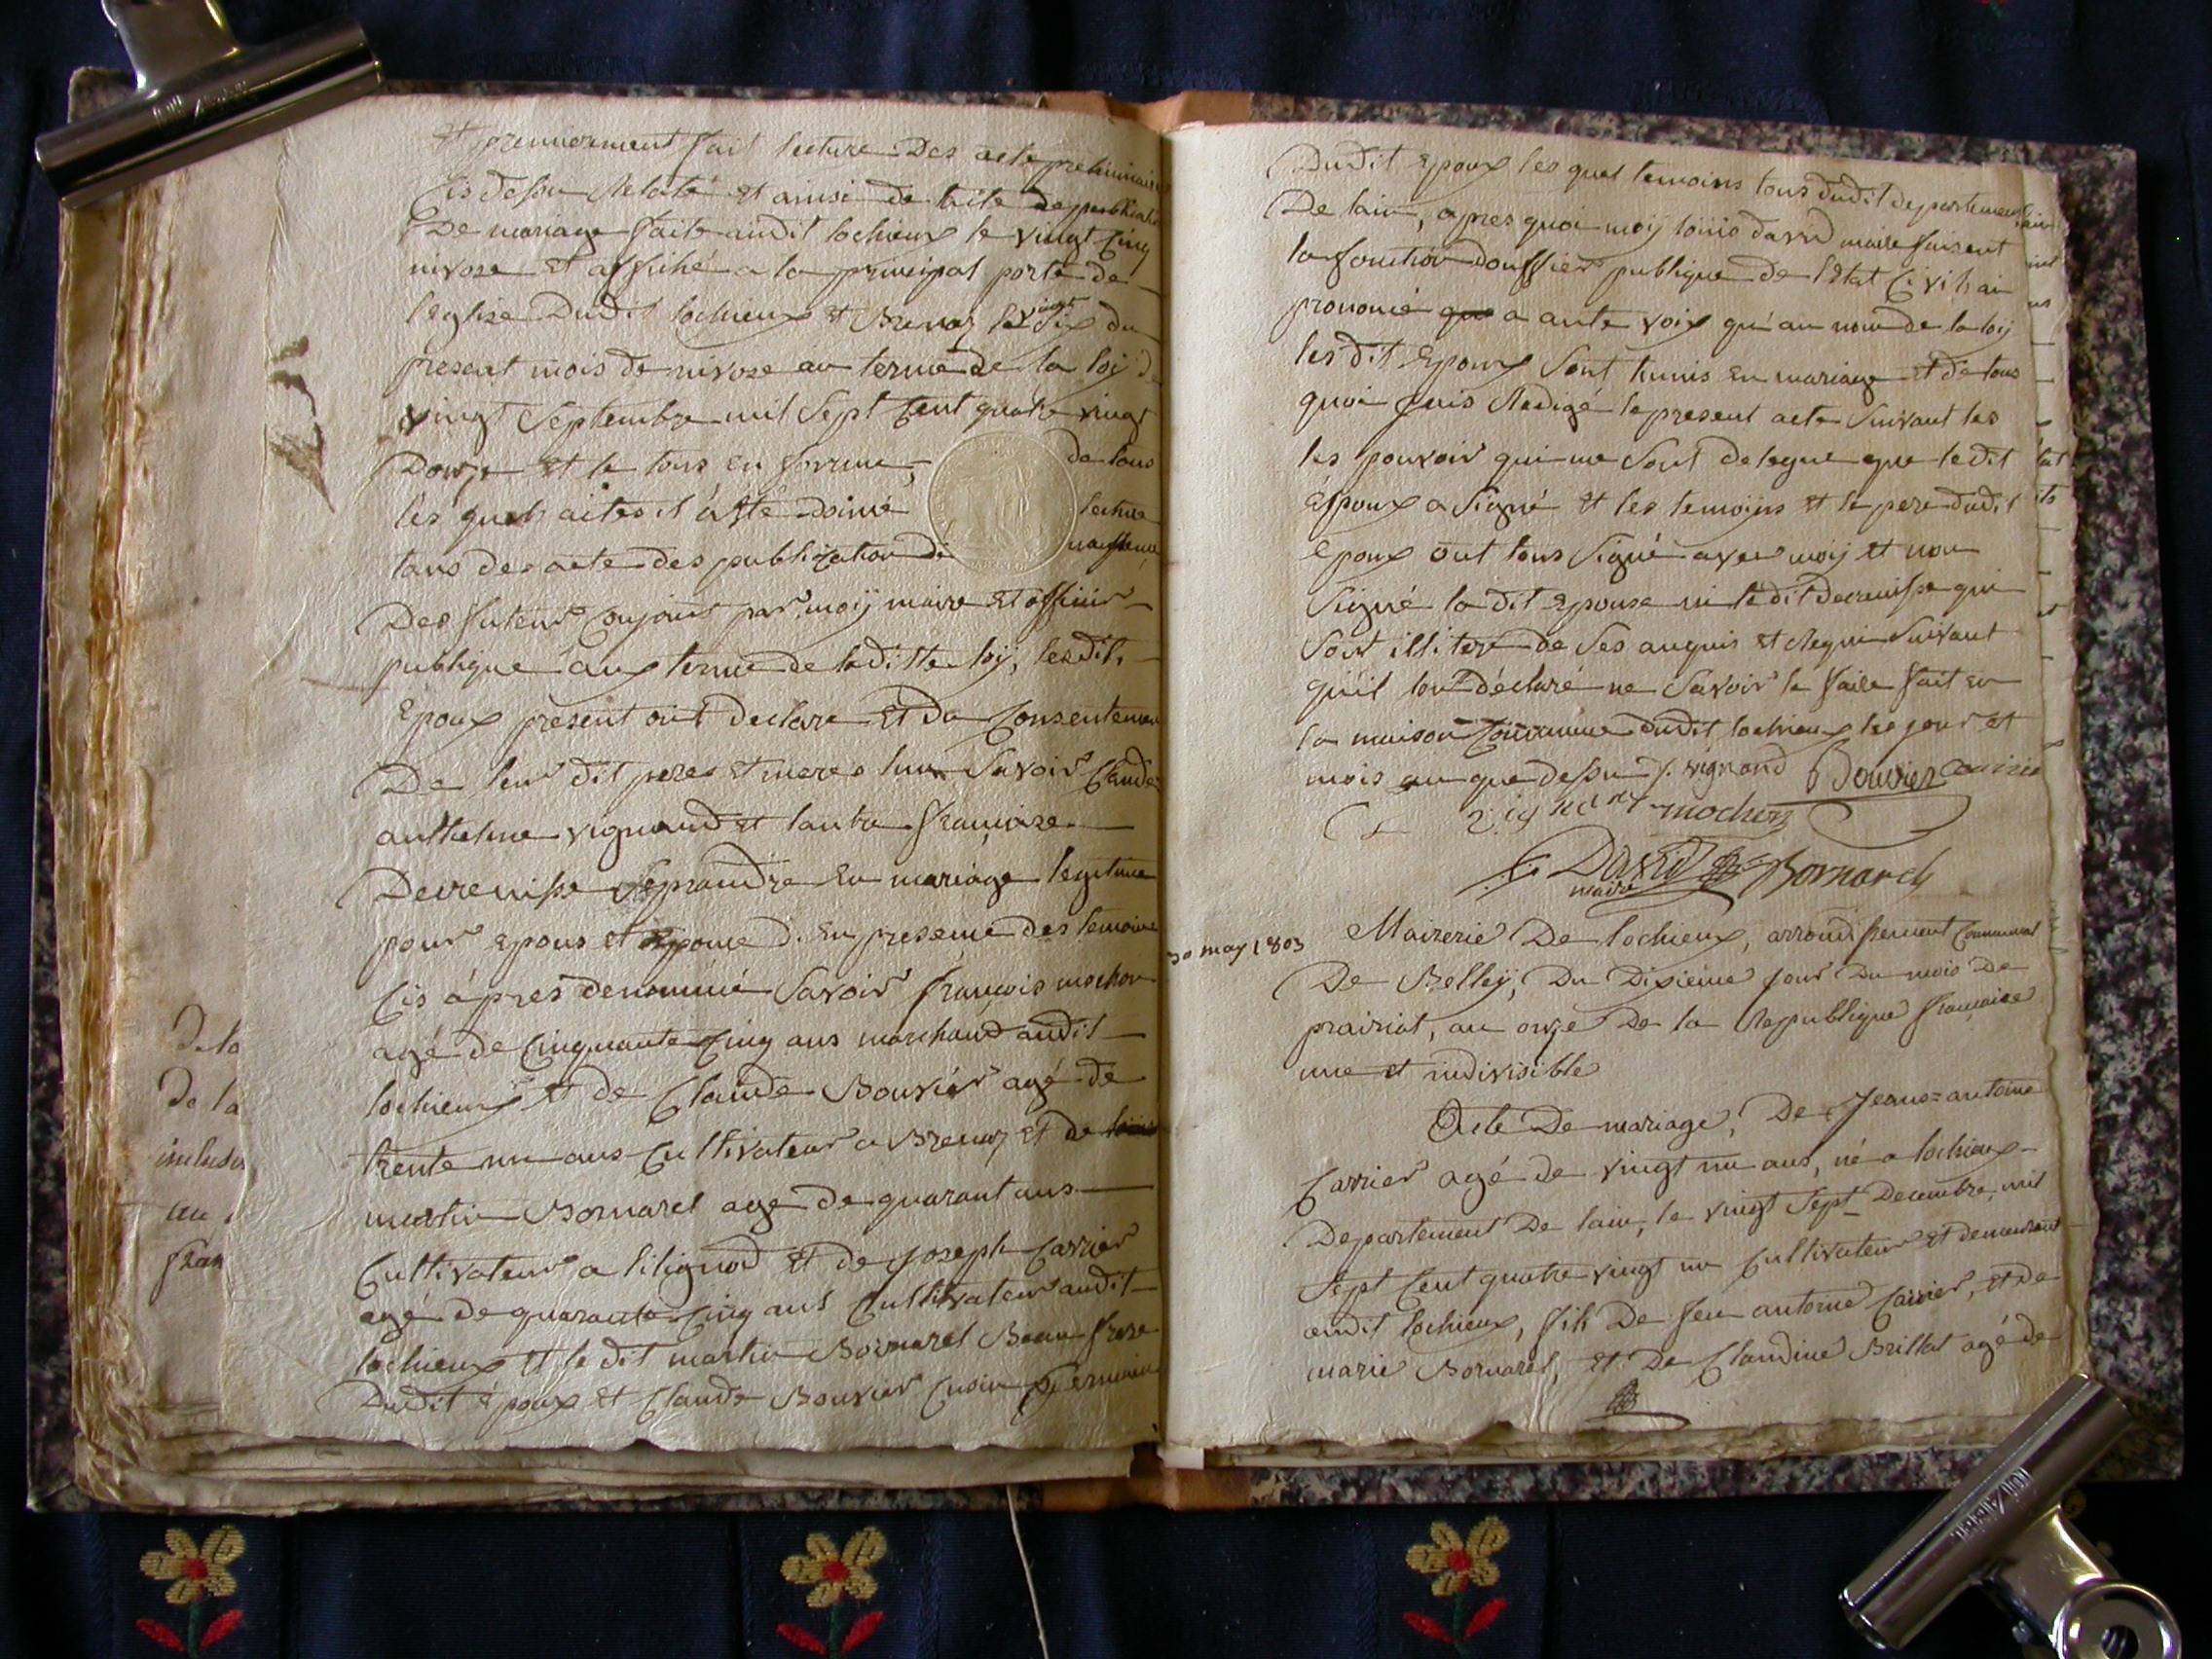 Et premierement fait lecture Des acte preliminaire
Cis dessu Relaté Et ainsi de lacte de publication
De mariage faite audit lochieux le vingt cinq
nivose Et affiché a la principal porte de
leglise Dudit lochieux Et Brenaz le vingt Six du
present mois de nivose au terme de la loij de
vingt Septembre mil Sept Cent quatre vingt
Douze Et le tous en forme, de tous
les quels actes il a Été donné lecture
tans des acte des publication de naissance
Des futeur Conjoint par moij maire Et officier
publique aux terme de laditte loij, lesdit
Epoux present ont declare Et du Consentemen
De leur dit peres et meres lun Savoir Claude
anthelme vignand et lautre francoise
Decrenisse Seprandre En mariage legitime
pour Epous et Epouse d. En presence des temoins
Cis ápres denommé Savoir francois mochon
agé de Cinquante Cinq ans marchand audit
lochieux Et de Claude Bouvier agé de
trente un ans Cultivateur a Brenaz Et de
martin Bornarel agé de quarant ans
Cultivateur a lilignod Et de Joseph Carrier
agé de quarante Cinq ans Cultivateur audit
lochieux Et le dit martin Bornarel Beau frere
Dudit époux Et Claude Bouvier Cusin Germain
Dudit Epoux les quel temoins tous dudit departement
De lain, apres quoi moij louis david maire faisent
la fonction douffier publique de lEtat Civil ai
prononcé que a aute voix qu'au nom de la loij
les dit Epoux Sont hunis En mariage Et de tous
quoi Jais Redigé le present acte Suivant les
les pouvoir qui me Sont delegue que ledit
Époux a Signé Et les temoijns Et le pere dudit
Epoux ont tous Signé avec moij Et non
Signé la dit Epouse ni ledit decrenisse qui
Sont illiterè de Ses anquis Et Requi Suivant
quil lont déclaré ne Savoir le faire fait En
la maison Commune dudit lochieux les jour Et
mois an que dessu J. vignand Bouvier Carrier
mochon
L. David Bornarel
maire
30 may 1803
Mairerie De lochieux, arrondissement Communal
De Belleij, Du Dixieme Jour Du mois De
prairial, an onze De la Republique francaise
une et indivisible
Acte De mariage, De Jeans=antoine
Carrier agé de vingt un ans, né a lochieux
Departement De lain, le vingt Sept Decembre mil
Sept Cent quatre vingt un Cultivateur Et demeurant
audit lochieux, fils De feu antoine Carrier, Et de
marie Bornarel, Et De Claudine Brillat agé de
de la
de la
inclusi
an
fran